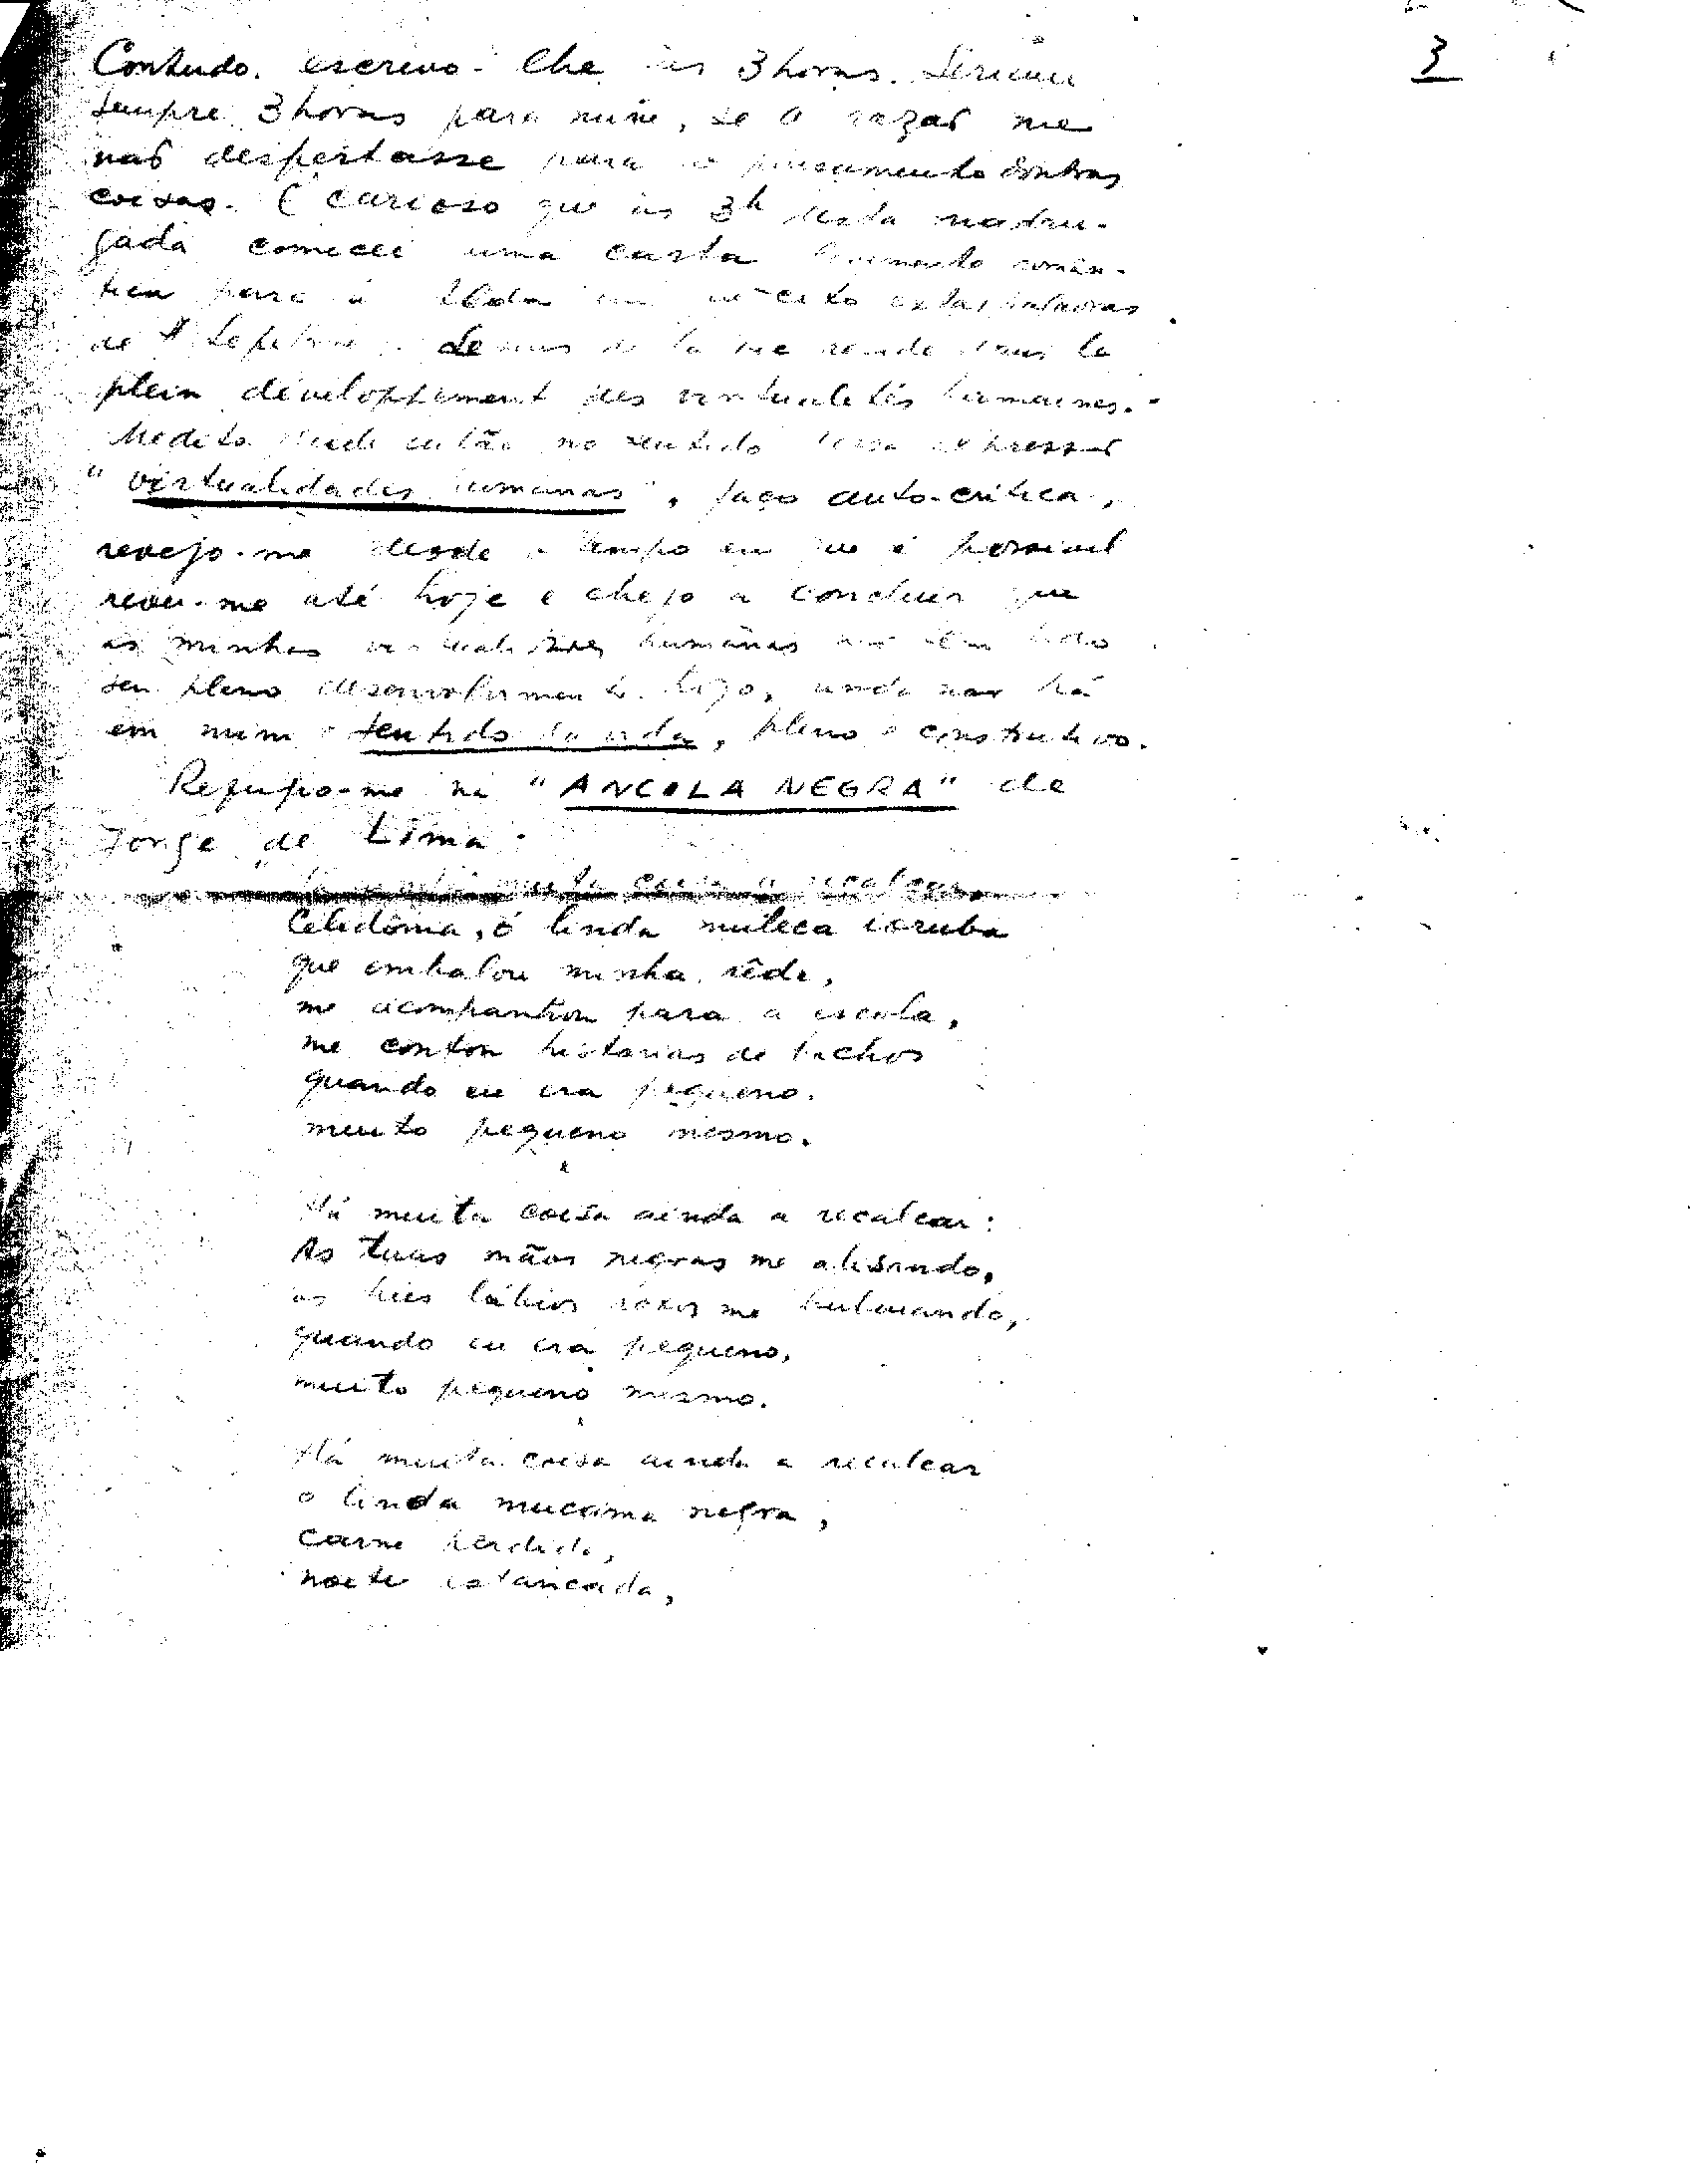 3
Contudo, escrevo-lhe às 3 horas. Seriam
sempre 3 horas para mim, se a razão me
não despertasse para o pensamento doutras
coisas. (Curioso que às 3h desta madru-
gada comecei uma carta român-
tica para a estas palavras
de H. Lefebvre: Le sens de la vie réside dans le
plein développement des virtualités humaines."
Medito desde então no sentido dessa expressão
"virtualidades humanas", faço auto-crítica,
revejo-me desde o tempo em que é possível
rever-me até hoje e chego a concluir que
as minhas virtualidades humanas não têm tido
seu pleno desenvolvimento. Logo, ainda não há
em mim o sentido da vida, pleno e construtivo.
Refugio-me na "ANGOLA NEGRA" de
Jorge de Lima:
muita coisa a recalcar
Celidônia, ó linda muleca ioruba
que embalou minha rêde,
me acompanhou para a escola,
me contou histórias de bichos
quando eu era pequeno.
muito pequeno mesmo.
Há muita coisa ainda a recalcar:
As tuas mãos negras me alisando,
os teus lábios roxos me bulinando,
quando eu era pequeno,
muito pequeno mesmo.
Há muita coisa ainda a recalcar
o linda mucama negra,
carne perdida,
noite estancada,